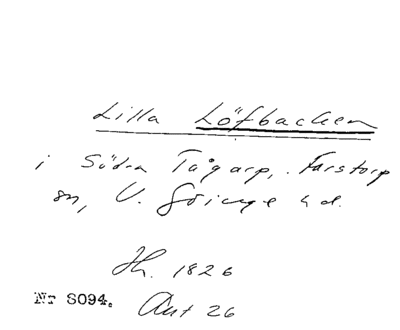 Lilla Löfbacken
i Södra Tågarp, Farstorp
sn, V. Göinge hd.
Jh. 1826
Nr S094. Ant 26